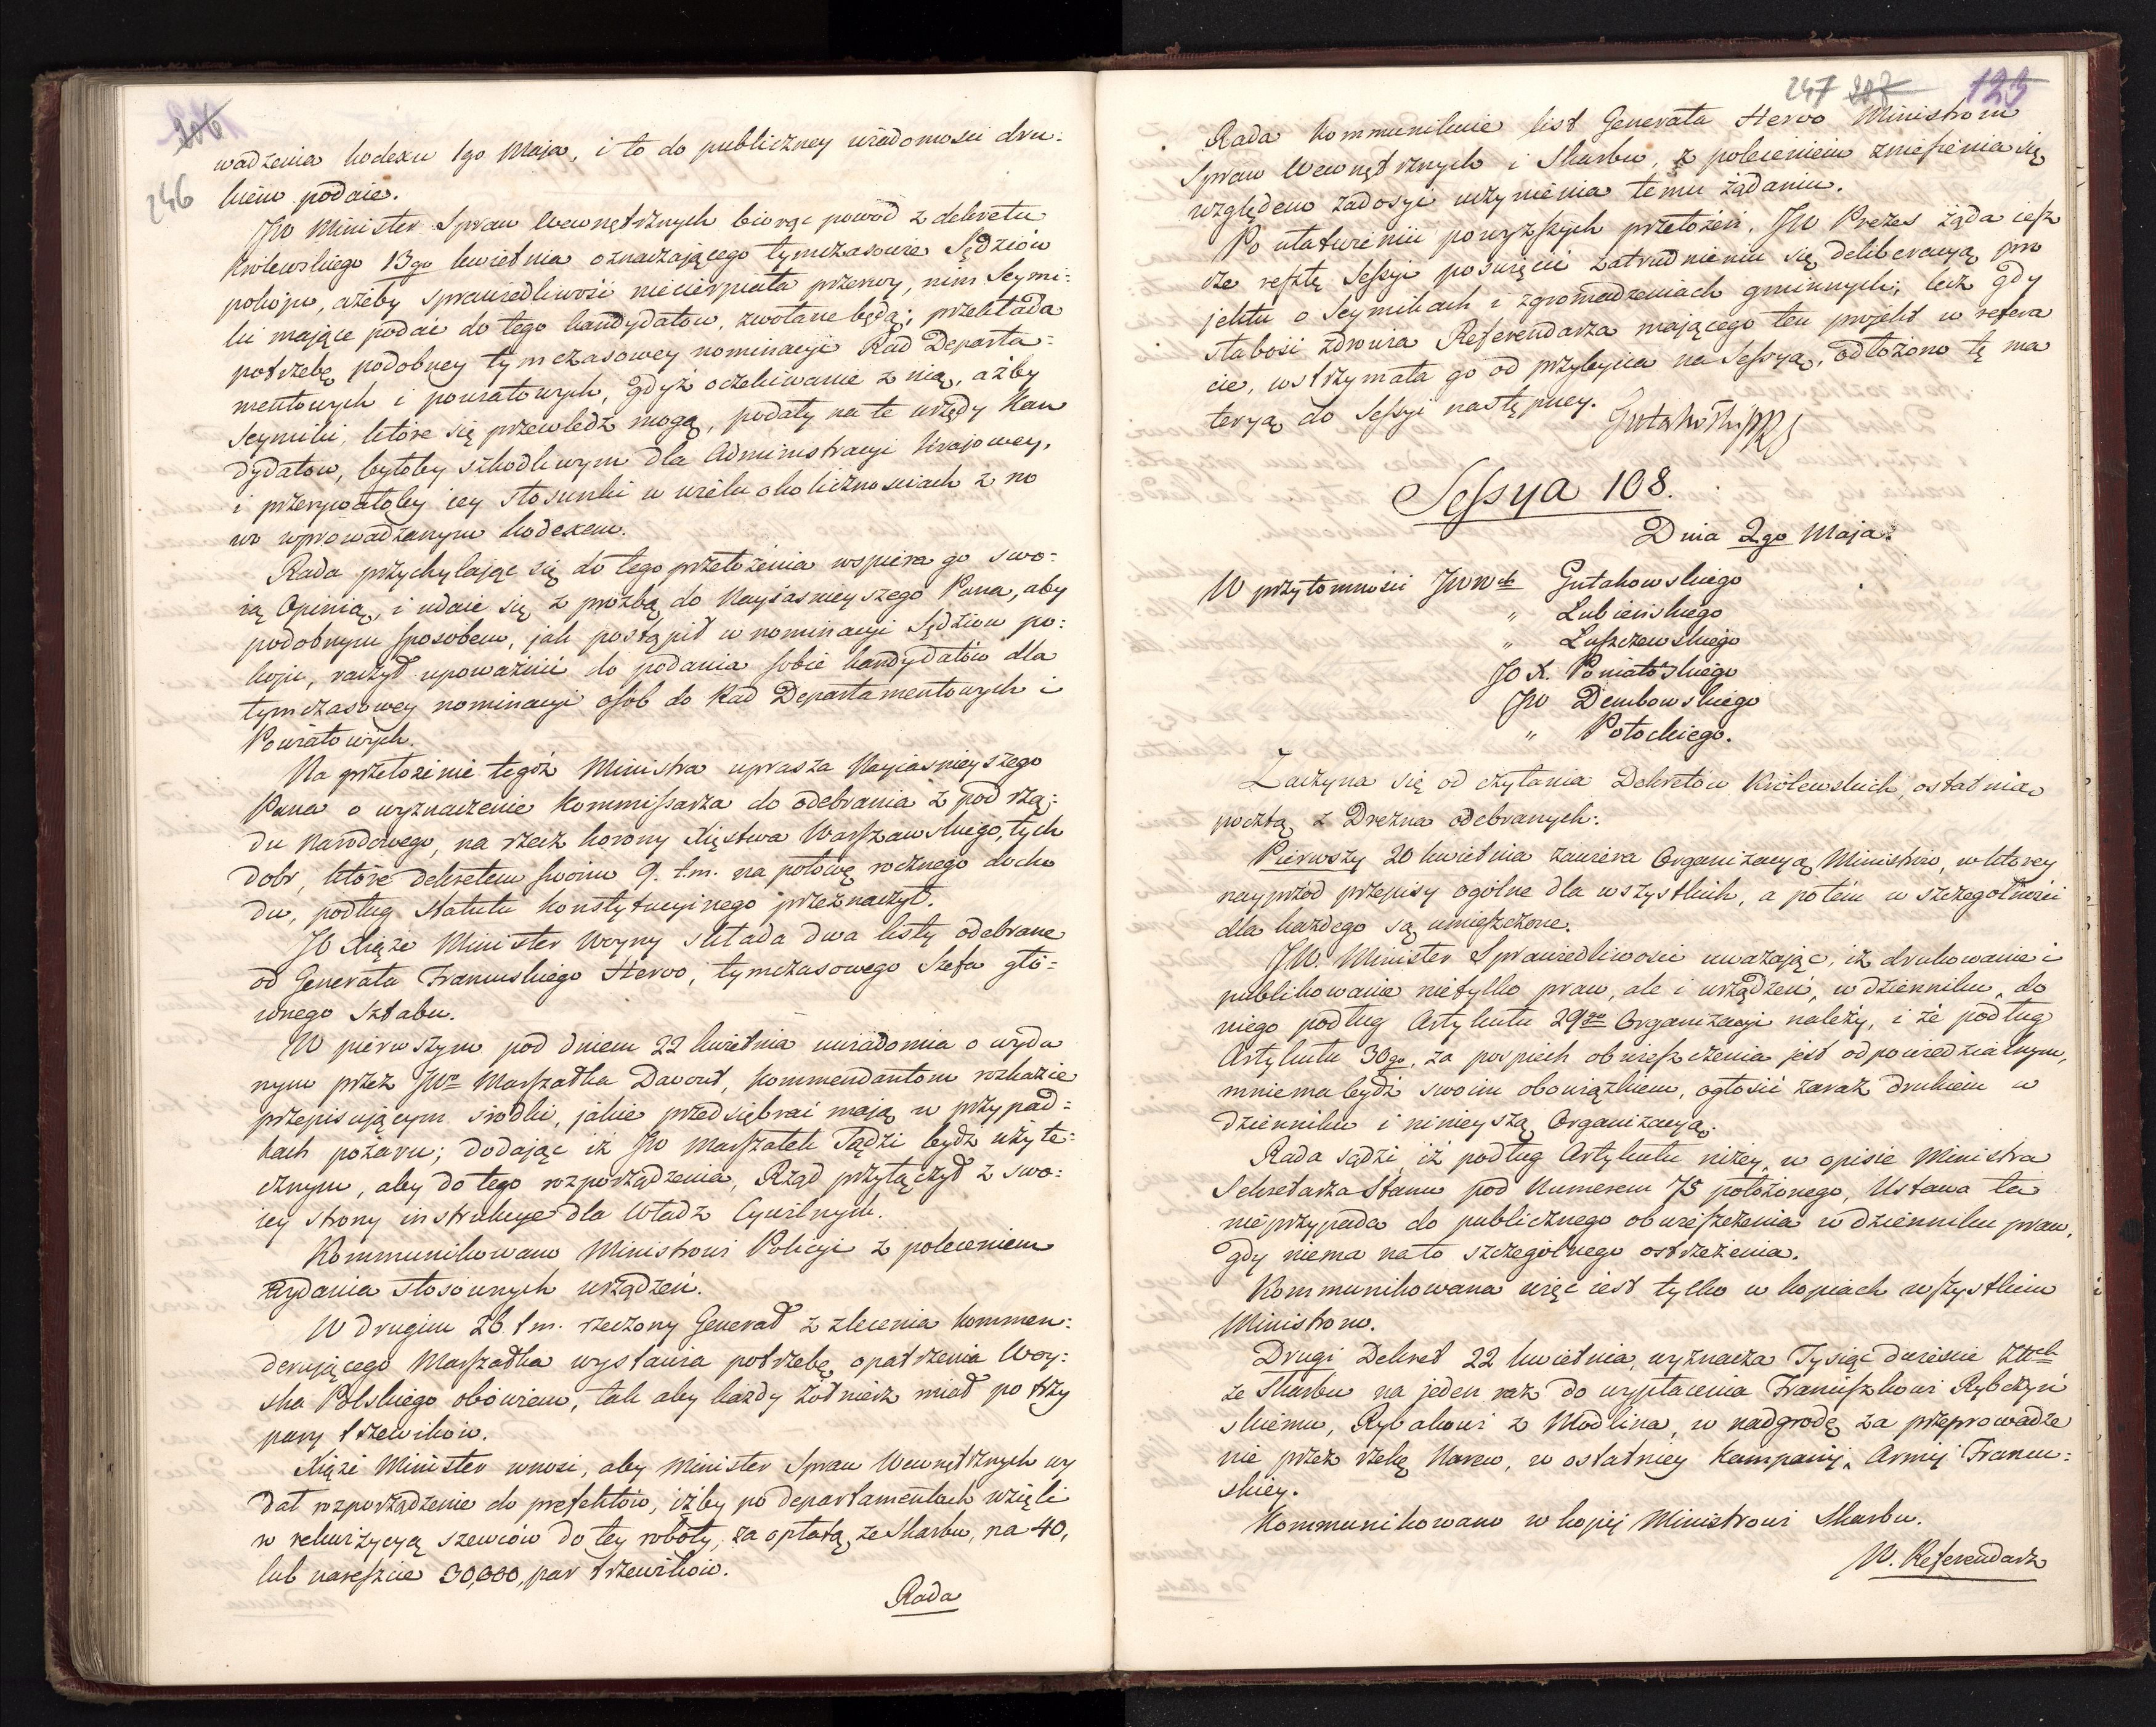 206
246
wadzenia kodexu 1go Maja, i to do publiczney wiadomości dru-
kiem podaie.
JW Minister Spraw Wewnętrznych biorąc powód z dekretu
Królewskiego 13go kwietnia oznaczającego tymczasowie Sędziów
pokoju, ażeby sprawiedliwość niecierpiała przerwy, nim Seymi-
ki mające podać do tego kandydatów, zwołane będą; przekłada
potrzebę podobney tymczasowey nominacyi Rad Departa-
mentowych i powiatowych, gdyż oczekiwanie z nią, ażby
Seymiki, które się przewledz mogą, podały na te urzędy Kan
dydatów, byłoby szkodliwym dla Administracyi Krajowey,
i przerywałoby iey stosunki w wielu okolicznościach z no
wo wprowadzanym kodexem.
Rada przychylając się do tego przełożenia wspiera go swo-
ią Opinią, i udaie się z prozbą do Nayiaśnieyszego Pana, aby
podobnym sposobem, jak postąpił w nominacyi Sędziow po-
koju, raczył upoważnić do podania sobie kandydatów dla
tymczasowey nominacyi osob do Rad Departamentowych i
Powiatowych.
Na przełożenie tegoż Ministra uprasza Nayiaśnieyszego
Pana o wyznaczenie Kommissarza do odebrania z pod rzą-
du Narodowego, na rzecz korony Xięstwa Warszawskiego, tych
dobr, które dekretem swoim 9. t.m. na połowę rocznego docho
du, podług Statutu konstytucyinego przeznaczył.
JO Xiąże Minister Woyny składa dwa listy odebrane
od Generała Francuskiego Hervo, tymczasowego Szefa głó-
wnego Sztabu.
W pierwszym pod dniem 22 kwietnia uwiadomia o wyda
nym przez JWo Marszałka Davout, Kommendantom rozkazie
przepisującym środki, jakie przedsiębrać mają w przypad-
kach pożaru; dodając iż JW Marszałek sądzi bydz użyte-
cznym, aby do tego rozporządzenia, Rząd przyłączył z swo-
iey strony instrukcye dla Władz Cywilnych.
Kommunikowano Ministrowi Policyi z poleceniem
wydania stosownych urządzeń.
W drugim 26. t m. rzeczony Generał z zlecenia Kommen-
derującego Marszałka wystawia potrzebę opatrzenia Woy-
ska Polskiego obówiem, tak aby każdy żołnierz miał po trzy
pary trzewików.
Xiąże Minister wnosi, aby Minister Spraw Wewnętrznych wy
dał rozporządzenie do prefektów, iżby po departamentach wzięli
w rekwizycyą szewców do tey roboty, za opłatą ze Skarbu, na 40,
lub nareszcie 30,000, par trzewików.
Rada
247 207 123
Rada kommunikuie list Generała Hervo Ministrom
Spraw Wewnętrznych i Skarbu, z poleceniem zniesienia się
względem zadosyć uczynienia temu żądaniu.
Po ułatwieniu powyższych przełożeń, JW Prezes żąda iesz
cze resztę Sessyi poświęcić zatrudnieniu się deliberacyą pro
jektu o Seymikach i zgromadzeniach gminnych; lecz gdy
słabość zdrowia Referendarza mającego ten projekt w refera
cie, wstrzymała go od przybycia na Sessyą, odłożono tę ma
teryą do Sessyi następney. Gutakowski
Sessya 108.
Dnia 2go Maja.
W przytomności JWWch Gutakowskiego
" Łubieńskiego
" Łuszczewskiego
JO X. Poniatoskiego
JW Dembowskiego
" Potockiego.
Zaczyna się od czytania Dekretów Królewskich, ostatnią
pocztą z Drezna odebranych.
Pierwszy 20 kwietnia zawiera Organizacyą Ministrów, w którey
nayprzód przepisy ogólne dla wszystkich, a potém w szczególności
dla każdego są umieszczone.
JW. Minister Sprawiedliwości uważając, iż drukowanie i
publikowanie nietylko praw, ale i urządzeń, w dzienniku, do
niego podług Artykułu 29go Organizacyi należy, i że podług
Artykułu 30go, za pospiech obwieszczenia jest odpowiedzialnym,
mniema bydź swoim obowiązkiem, ogłosić zaraz drukiem w
dzienniku i ninieyszą Organizacyą.
Rada sądzi, iż podług Artykułu niżey, w opisie Ministra
Sekretarza Stanu pod Numerem 75 położonego, Ustawa ta
nieprzypada do publicznego obwieszczenia w dzienniku praw,
gdy niema na to szczególnego ostrzeżenia.
Kommunikowana więc iest tylko w kopiach wszystkim
Ministrom.
Drugi Dekret 22 kwietnia, wyznacza Tysiąc dwieście Złtch
ze Skarbu na jeden raz do wypłacenia Franciszkowi Rybczyń
skiemu, Rybakowi z Modlina, w nadgrodę za przeprowadze
nie przez rzekę Narew, w ostatniey Kampanij, Armij Francu-
skiey.
Kommunikowano w kopij Ministrowi Skarbu.
W. Referendarz